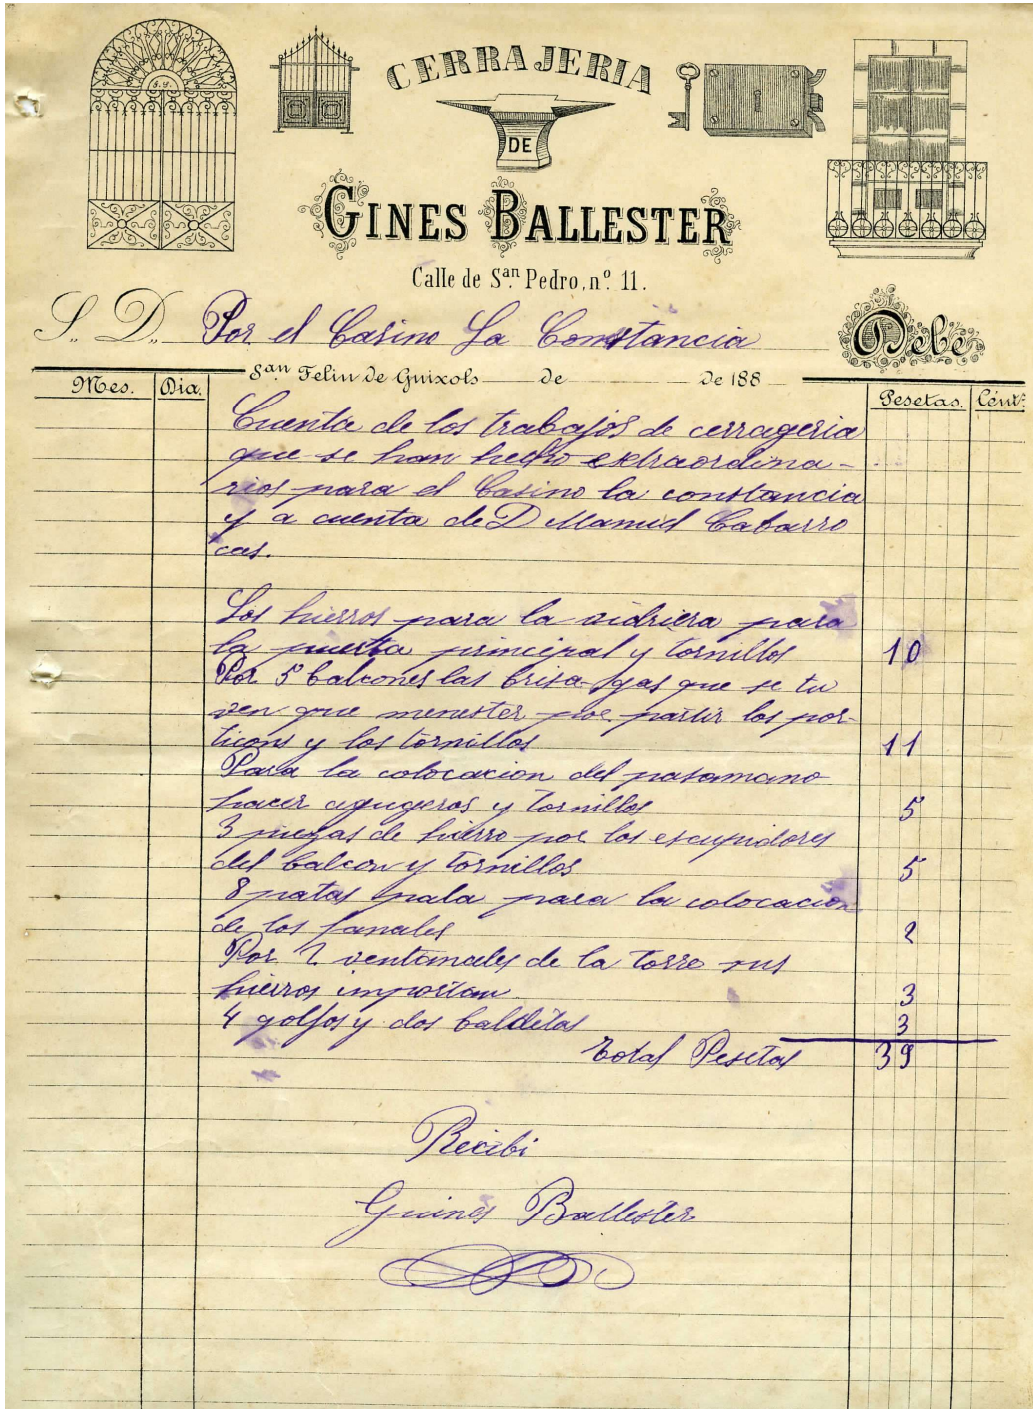 CERRAJERIA
DE
GINES BALLESTER
Calle de Sªⁿ Pedro, nº 11.
S. D. Por el Casino La Constancia Debe
Sªⁿ Feliu de Guixols de de 188
Mes. Dia. Pesetas. Cént.ˢ
Cuenta de los trabajos de cerrageria
que se han hecho extraordina-
rios para el Casino la constancia
y a cuenta de D Manuel Cabarro
cas.
Los hierros para la vidriera para
la puerta principal y tornillos 10
Por 5 balcones las brisa gas que se tu
ven que menester por partir los por-
ticons y los tornillos 11
Para la colocacion del pasamano
hacer agugeros y tornillos 5
3 piezas de hierro por los escupidores
del balcon y tornillos 5
8 patas pala para la colocacion
de los fanales 2
Por 2 ventanales de la torre sus
hierros importan 3
4 golfos y dos balditas 3
Total Pesetas 39
Recibi
Guines Ballester